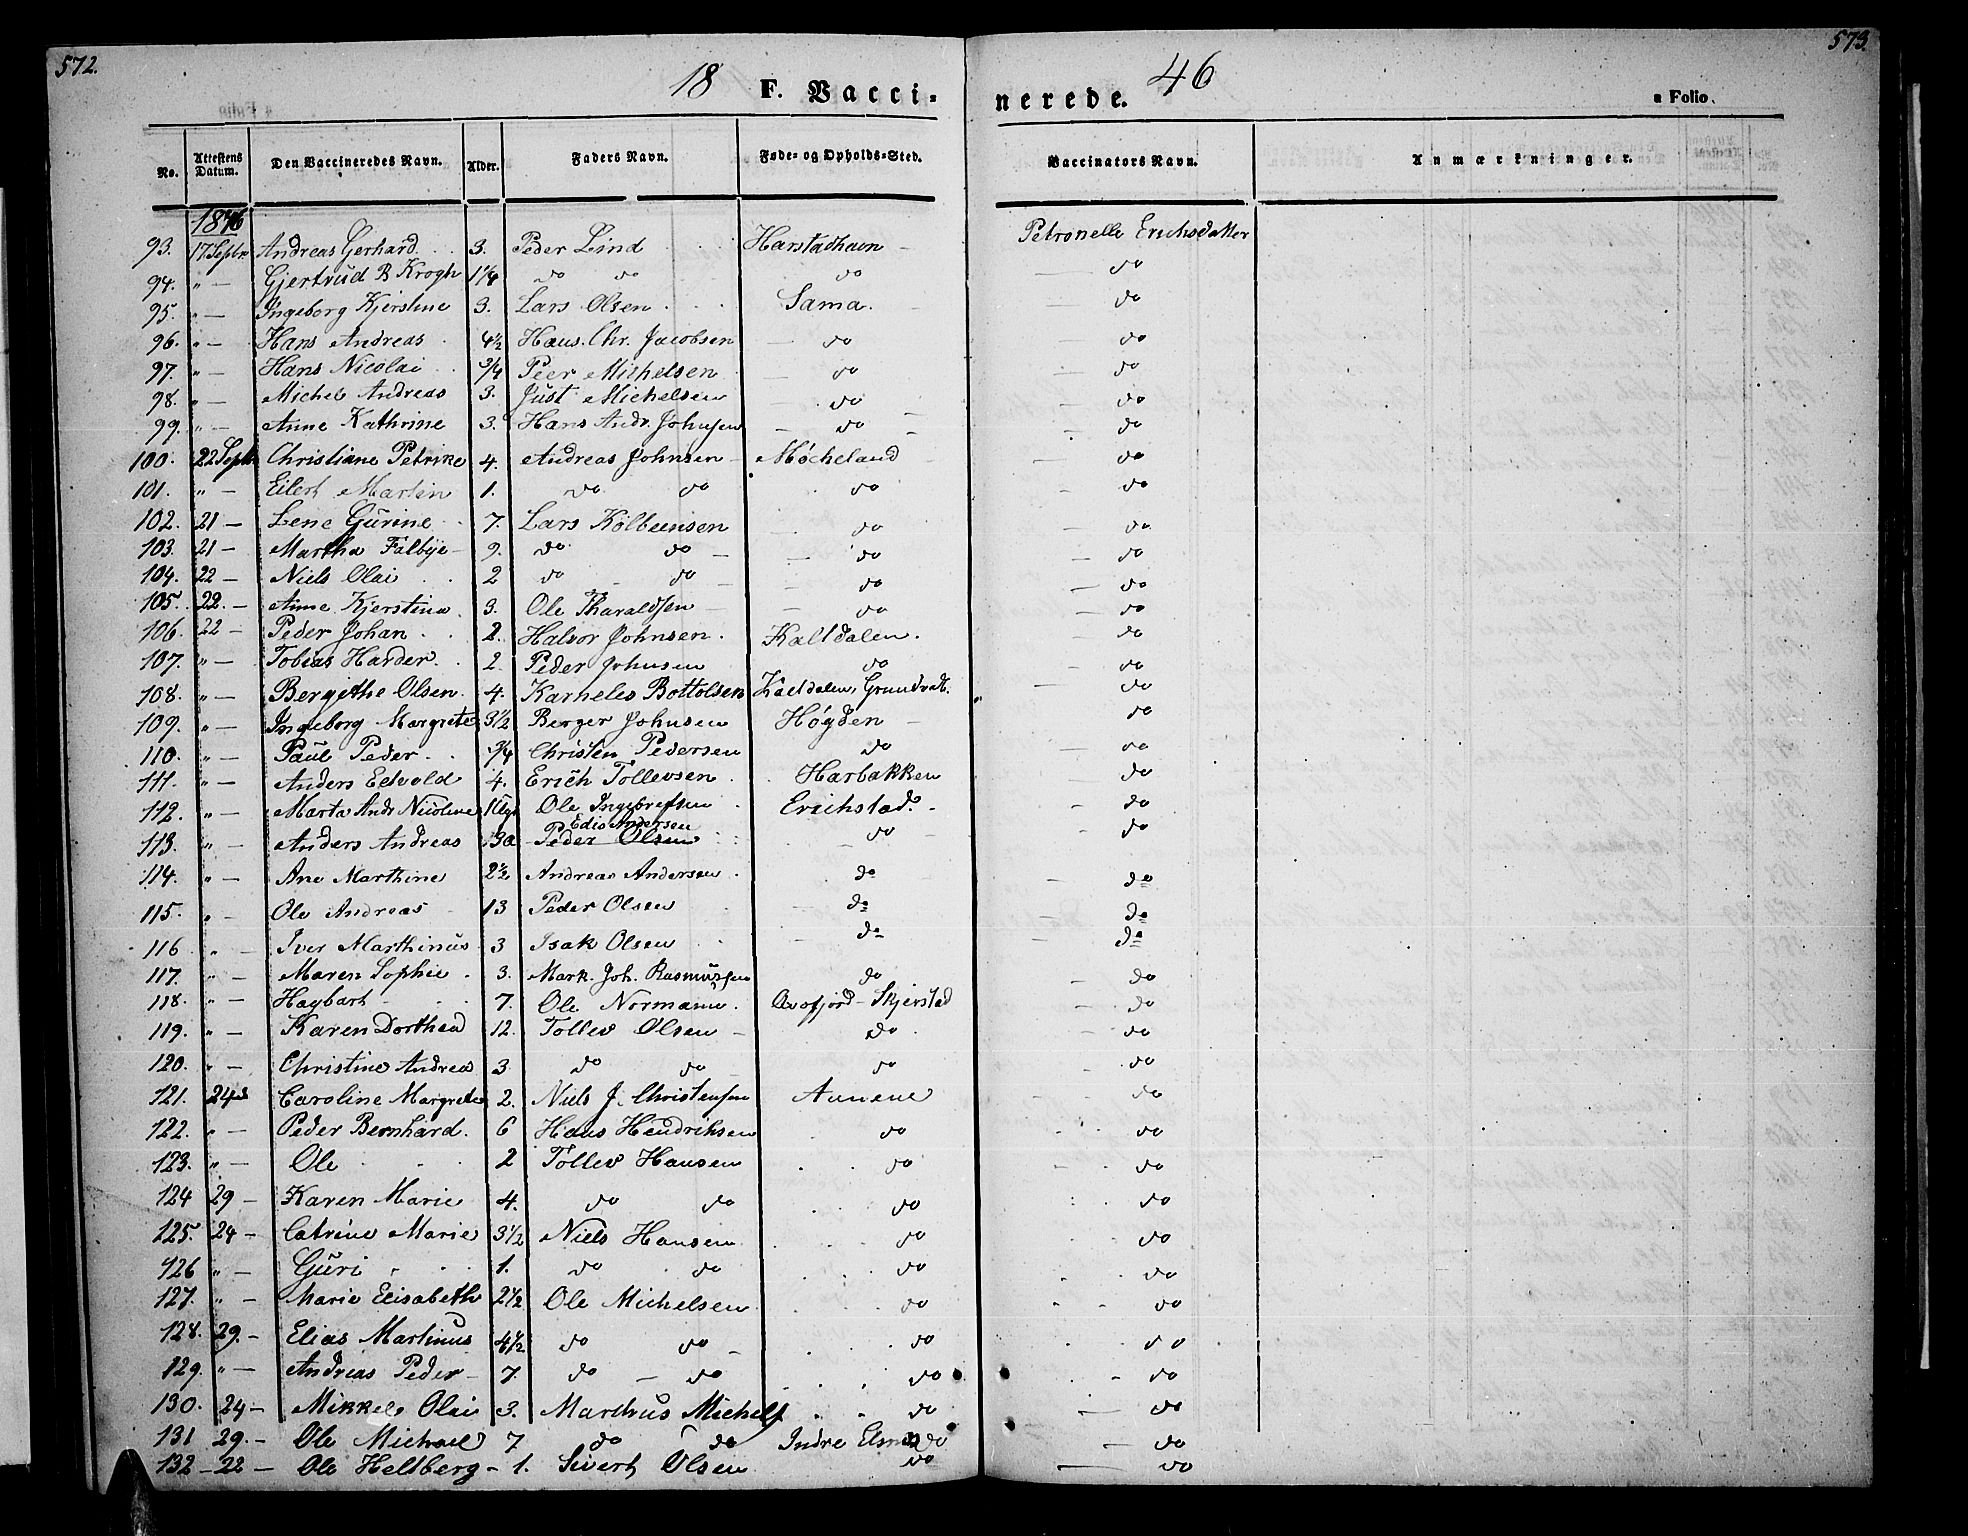 572. 573.
18 F. Vacci- nerede. 46 a Folio.
No. Attestens Datum. Den Vaccineredes Navn. Alder. Faders Navn. Føde- og Opholds-Sted. Vaccinators Navn. Anmærkninger.
1846
93. 17 Septr Andreas Gerhard 3. Peder Lind Harstadhavn Petronelle Erichsdatter
94. " — Gjertrud B Krogh 1 1/4 do do do — do
95. " — Ingeborg Kjerstine 3. Lars Olsen Sama. — do
96. " — Hans Andreas 4 1/2 Hans. Chr. Jacobsen — do do
97. " — Hans Nicolai 3/4 Peer Michelsen — do do
98. " — Michel Andreas 3. Just Michelsen — do do
99. " — Anne Kathrine 3. Hans Andr. Johnsen — do — do
100. 22 Septr Christiane Petrike 4. Andreas Johnsen — Møcheland — do
101. " — Eilert Martin 1. do do do — do
102. 21 — Lene Gurine 7. Lars Kolbeensen do — do
103. 21 — Martha Falbye 9. do do — do — do
104. 22 — Niels Olai 2 do do — do — do
105. 22. — Anne Kjerstina 3. Ole Tharaldsen — do — do
106. 22 — Peder Johan 2. Halvor Johnsen. Kaltdalen. — do
107. " — Tobias Harder. 2. Peder Johnsen do — do
108. " — Bergithe Olsen. 4. Karneles Bottolsen Kaltdalen, — do
109. " — Ingeborg Margrete 3 1/2 Berger Johnsen Høgden — do
110. " — Paul Peder 3/4 Christen Pedersen do — do
111. " — Anders Edvold 4. Erich Tollevsen Harbakken — do
112. " — Marta Andr Nicoline Ole Ingebretsen Erichstad. — do
Edis Andersen
113. " — Anders Andreas Peder Olsen do do
114. " — Ane Marthine 2 1/2 Andreas Andersen do — do
115. " — Ole Andreas 13 Peder Olsen — do — do
116 " — Iver Marthinus 3 Isak Olsen — do — do
117. " — Maren Sophie 3. Mark. Joh. Rasmussen do — do
118. " — Hagbart 7. Ole Normann Qvæfjord - Skjerstad — do
119. " — Karen Dorthea 12. Tollev Olsen — do — do
120. " — Christine Andrea 3 do do do do
121. 24de Caroline Margrete 2. Niels J. Christensen Aunene — do
122. " — Peder Bernhard. 6 Hans Hendriksen do do
123. " — Ole 2 Tollev Hansen do do
124 29 — Karen Marie 4. do do do do
125. 24 — Catrine Marie 3 1/2 Niels Hansen do do
126 " — Guri 1. do do do do
127. " — Marie Elisabeth 2 1/2 Ole Michelsen do do
128. 29. — Elias Martinus 4 1/2 do do do do
129. " — Andreas Peder 7. do — do do do
130. 24 — Mikkel Olai 3. Marthus Michels do do
131 29. — Ole Michael 7 do do Indre do — do
132 — 22 — Ole Heltberg — 1. Sivert Olsen do — do